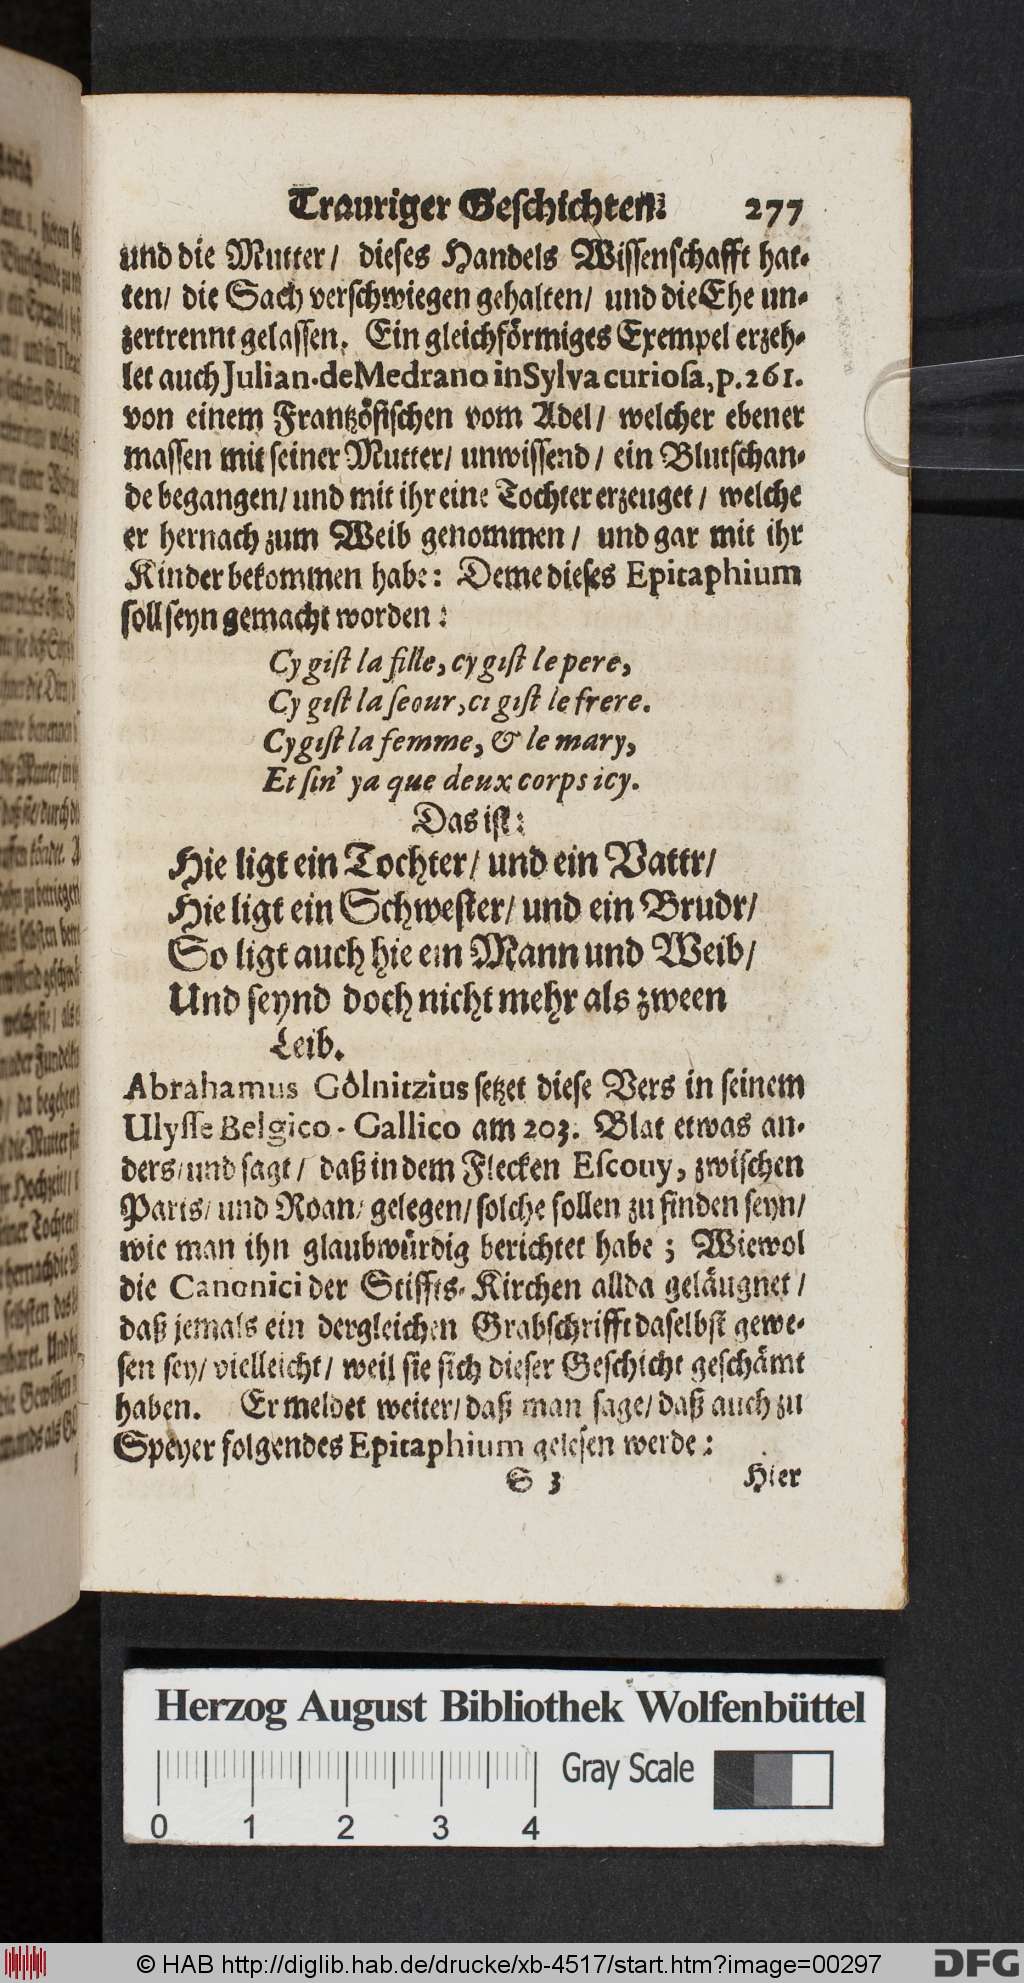 Trauriger Geschichten. 277
und die Mutter / dieses Handels Wissenschafft hat-
ten / die Sach verschwiegen gehalten / und die Ehe un-
zertrennt gelassen. Ein gleichförmiges Exempel erzeh-
let auch Julian. de Medrano in Sylva curiosa, p. 261.
von einem Frantzösischen vom Adel / welcher ebener
massen mit seiner Mutter / unwissend / ein Blutschan-
de begangen / und mit ihr eine Tochter erzeuget / welche
er hernach zum Weib genommen / und gar mit ihr
Kinder bekommen habe: Deme dieses Epitaphium
soll seyn gemacht worden:
Cy gist la fille, cy gist le pere,
Cy gist la seour, ci gist le frere.
Cy gist la femme, & le mary,
Et sin' ya que deux corps icy.
Das ist:
Hie ligt ein Tochter / und ein Vattr /
Hie ligt ein Schwester / und ein Brudr /
So ligt auch hie ein Mann und Weib /
Und seynd doch nicht mehr als zween
Leib.
Abrahamus Gölnitzius setzet diese Vers in seinem
Ulysse Belgico-Gallico am 203. Blat etwas an-
ders / und sagt / daß in dem Flecken Escouy, zwischen
Paris / und Roan / gelegen / solche sollen zu finden seyn /
wie man ihn glaubwürdig berichtet habe; Wiewol
die Canonici der Stiffts-Kirchen allda geläugnet /
daß jemals ein dergleichen Grabschrifft daselbst gewe-
sen sey / vielleicht / weil sie sich dieser Geschicht geschämt
haben. Er meldet weiter / daß man sage / daß auch zu
Speyer folgendes Epitaphium gelesen werde:
S 3 Hier
Herzog August Bibliothek Wolfenbüttel
Gray Scale
0 1 2 3 4
© HAB http://diglib.hab.de/drucke/xb-4517/start.htm?image=00297
DFG